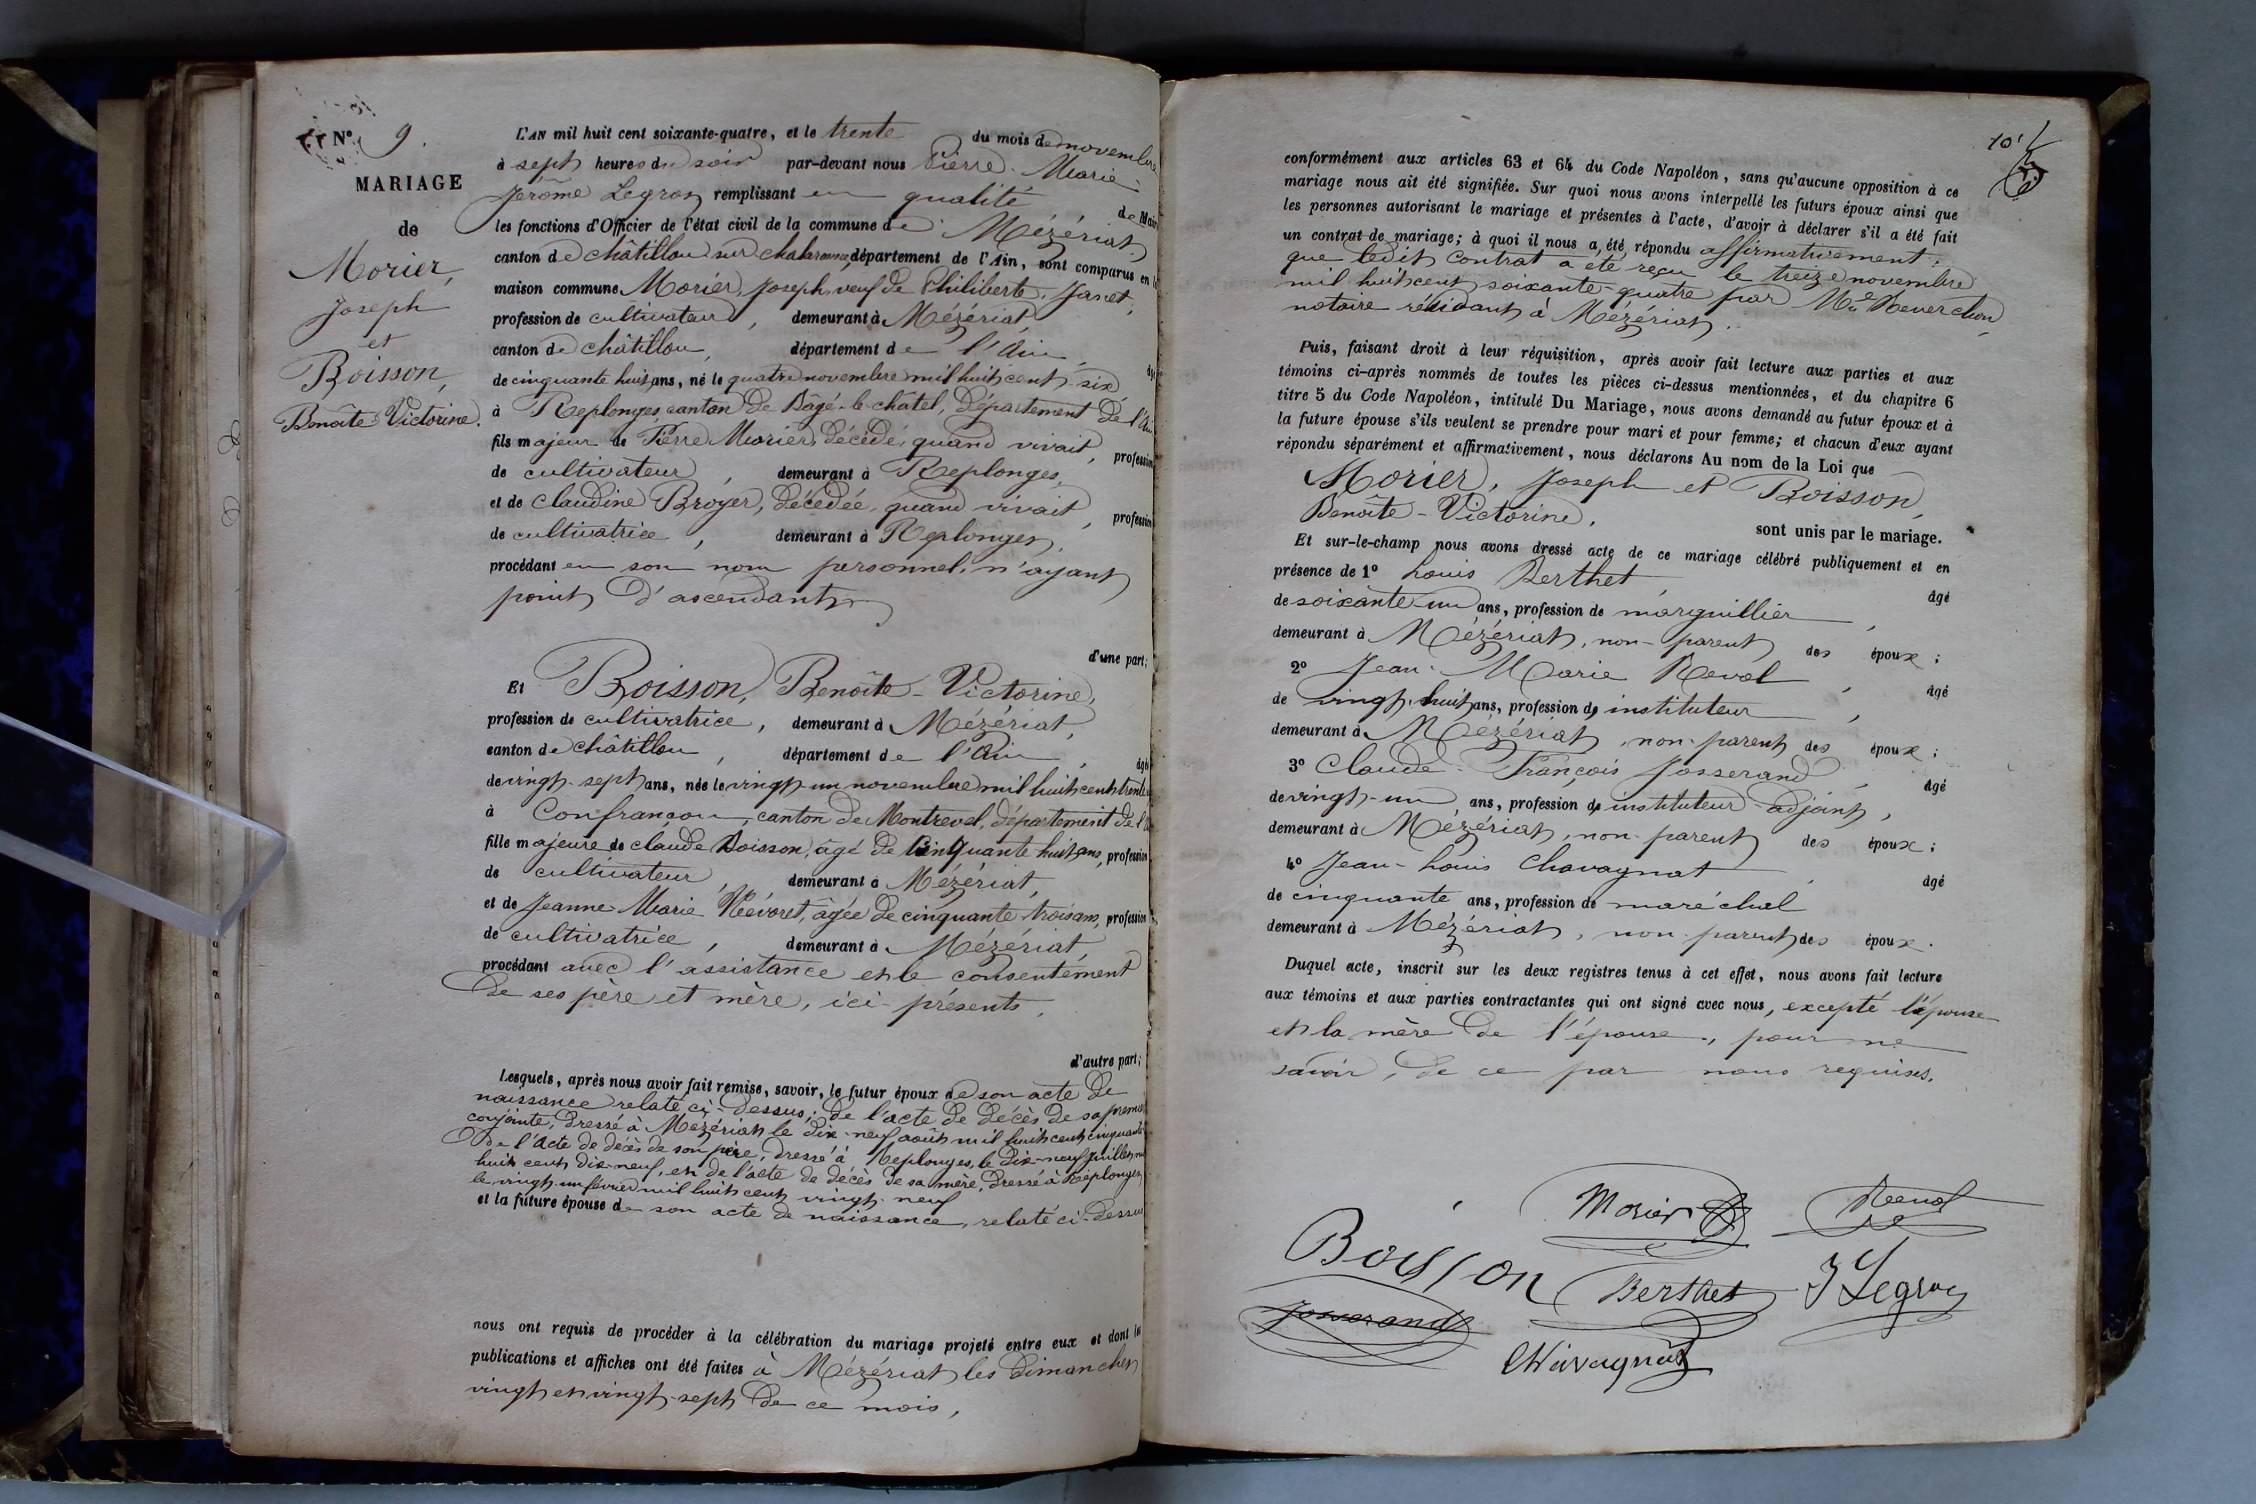 N° 9.
MARIAGE
de
Morier,
Joseph
et
Boisson,
Benoîte Victorine.
L'AN mil huit cent soixante-quatre, et le trente du mois de novembre
à sept heures du soir par-devant nous Pierre-Marie-
Jérôme Legros remplissant en qualité de Maire
les fonctions d'Officier de l'état civil de la commune de Mézériat
canton de Châtillon sur Chalaronne, département de l'Ain, sont comparus en la
maison commune Morier, Joseph, veuf de Philiberte Janet,
profession de cultivateur, demeurant à Mézériat,
canton de Châtillon, département de l'Ain, âgé
de cinquante huit ans, né le quatre novembre mil huit cent six
à Replonges, canton de Bâgé-le-châtel, Département de l'Ain
fils majeur de Pierre Morier, décédé, quand vivait, profession
de cultivateur, demeurant à Replonges,
et de Claudine Broyer, décédée, quand vivait, profession
de cultivatrice, demeurant à Replonges,
procédant en son nom personnel, n'ayant
point d'ascendants
d'une part;
Et Boisson, Benoîte-Victorine,
profession de cultivatrice, demeurant à Mézériat,
canton de châtillon, département de l'Ain, âgée
de vingt-sept ans, née le vingt-un novembre mil huit cent trente
à Confrançon, canton de Montrevel, département de l'Ain
fille majeure de Claude Boisson, âgé de cinquante huit ans, profession
de cultivateur, demeurant à Mézériat,
et de Jeanne Marie Névoret, âgée de cinquante trois ans, profession
de cultivatrice, demeurant à Mézériat,
procédant avec l'assistance et le consentement
de ses père et mère, ici présents,
d'autre part;
Lesquels, après nous avoir fait remise, savoir, le futur époux de son acte de
naissance relaté ci-dessus; de l'acte de décès de sa première
conjointe, dressé à Mézériat le dix-neuf août mil huit cent cinquante
de l'acte de décès de son père, dressé à Replonges, le dix-neuf juillet mil
huit cent dix-neuf, et de l'acte de décès de sa mère, dressé à Replonges,
le vingt-un février mil huit cent vingt-neuf
et la future épouse de son acte de naissance, relaté ci-dessus
nous ont requis de procéder à la célébration du mariage projeté entre eux et dont les
publications et affiches ont été faites à Mézériat les dimanches
vingt et vingt-sept de ce mois,
101
conformément aux articles 63 et 64 du Code Napoléon, sans qu'aucune opposition à ce
mariage nous ait été signifiée. Sur quoi nous avons interpellé les futurs époux ainsi que
les personnes autorisant le mariage et présentes à l'acte, d'avoir à déclarer s'il a été fait
un contrat de mariage; à quoi il nous a été répondu affirmativement;
que ledit contrat a été reçu le treize novembre
mil huit cent soixante-quatre par Me Reverchon
notaire résidant à Mézériat.
Puis, faisant droit à leur réquisition, après avoir fait lecture aux parties et aux
témoins ci-après nommés de toutes les pièces ci-dessus mentionnées, et du chapitre 6
titre 5 du Code Napoléon, intitulé Du Mariage, nous avons demandé au futur époux et à
la future épouse s'ils veulent se prendre pour mari et pour femme; et chacun d'eux ayant
répondu séparément et affirmativement, nous déclarons Au nom de la Loi que
Morier, Joseph et Boisson,
Benoîte-Victorine, sont unis par le mariage.
Et sur-le-champ nous avons dressé acte de ce mariage célébré publiquement et en
présence de 1° Louis Berthet, âgé
de soixante-un ans, profession de marguillier,
demeurant à Mézériat, non-parent des époux;
2° Jean-Marie Revol, âgé
de vingt-huit ans, profession d'instituteur,
demeurant à Mézériat, non-parent des époux;
3° Claude-François Josserand, âgé
de vingt-un ans, profession d'instituteur-adjoint,
demeurant à Mézériat, non-parent des époux;
4° Jean-Louis Chavagnat, âgé
de cinquante ans, profession de maréchal
demeurant à Mézériat, non-parent des époux.
Duquel acte, inscrit sur les deux registres tenus à cet effet, nous avons fait lecture
aux témoins et aux parties contractantes qui ont signé avec nous, excepté l'épouse
et la mère de l'épouse, pour ne
savoir, de ce par nous requises.
Morier Revol
Boisson Berthet J Legros
Josserand
Chavagnat